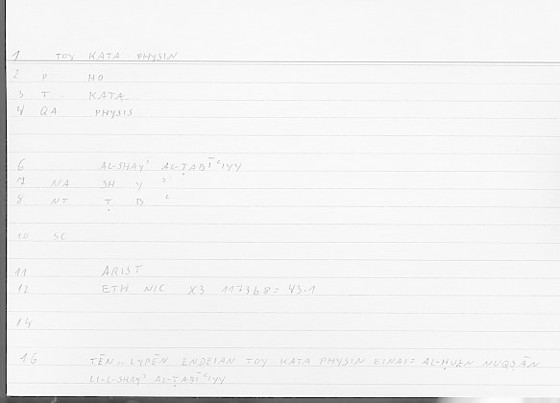 1 TOY KATA PHYSIN
2 P HO
3 T KATA
4 QA PHYSIS
6 AL-SHAYʾ AL-ṬABĪʿIYY
7 NA SH Y ʾ
8 NT Ṭ B ʿ
10 SC
11 ARIST
12 ETH NIC X3 1173b8 = 43.1
14
16 TĒN.. LYPĒN ENDEIAN TOY KATA PHYSIN EINAI = AL-ḤUZN NUQṢĀN
LI-L-SHAYʾ AL-ṬABĪʿIYY